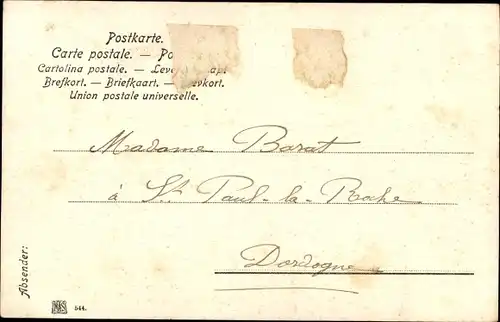 Postkarte.
Carte postale. —
Cartolina postale. —
Brefkort. — Briefkaart. —
Union postale universelle.
Madame Barat
à St. Paul-la-Roche
Dordogne
Absender:
544.